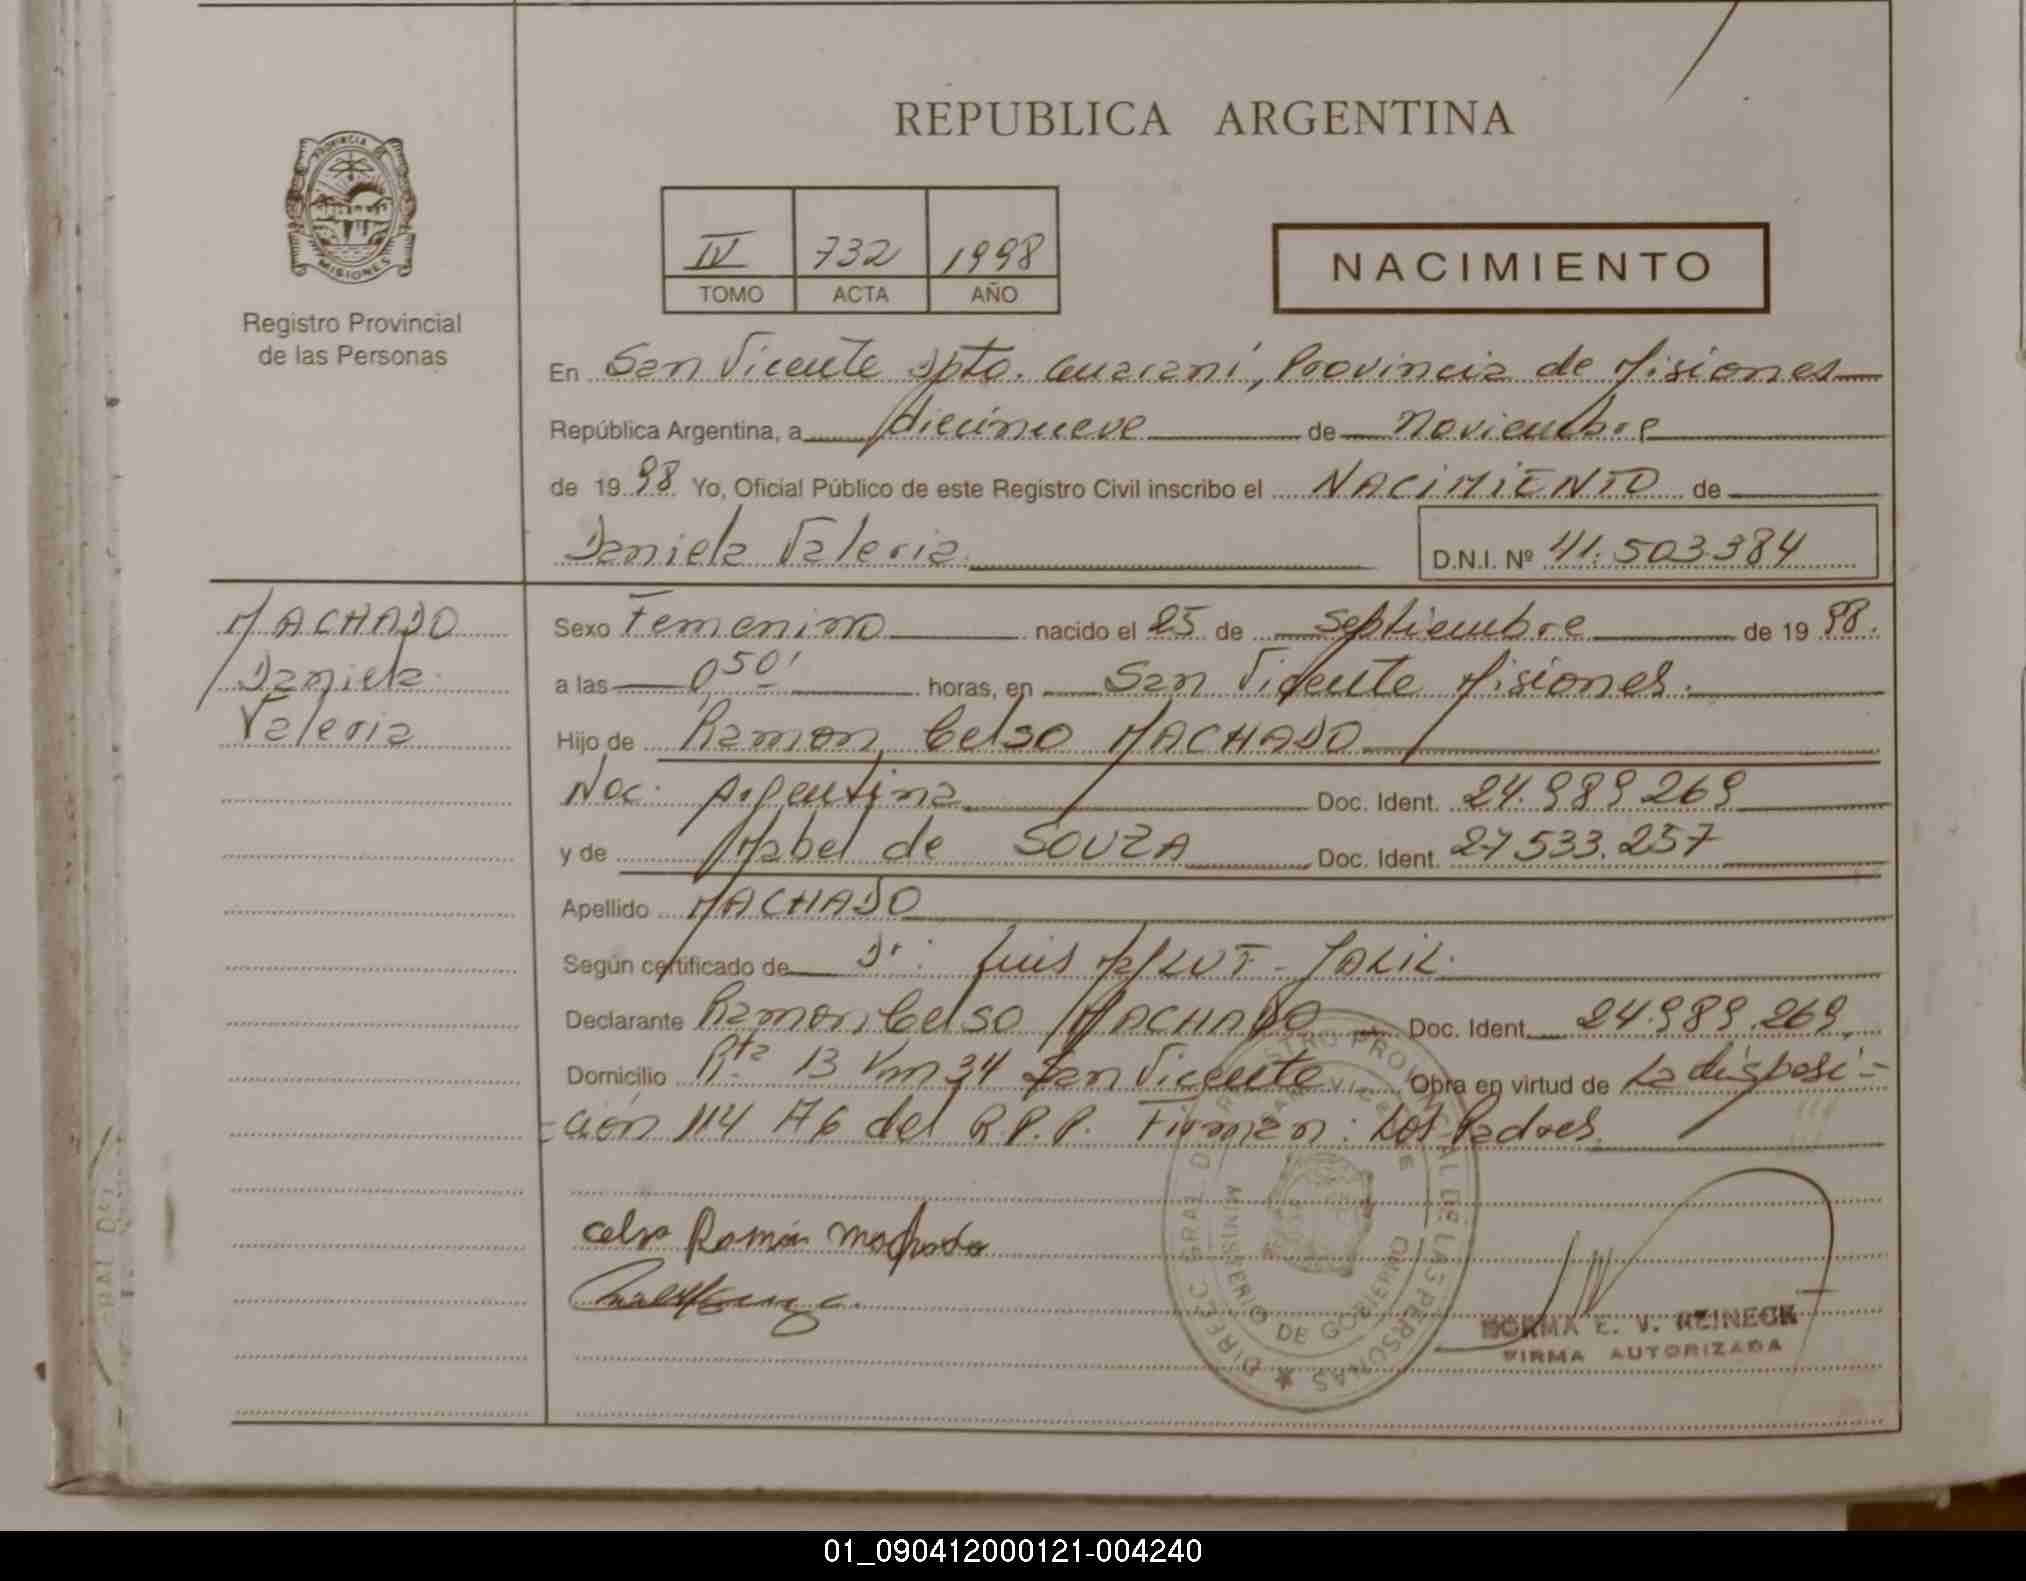 REPUBLICA ARGENTINA
PROVINCIA DE
MISIONES
Registro Provincial
de las Personas
IV 732 1998
TOMO ACTA AÑO
NACIMIENTO
En San Vicente Dpto. Guaraní, Provincia de Misiones
República Argentina, a diecinueve de Noviembre
de 1998 Yo, Oficial Público de este Registro Civil inscribo el NACIMIENTO de
Daniela Valeria
D.N.I. Nº 41.503.384
MACHADO
Daniela
Valeria
Sexo Femenino nacido el 25 de Septiembre de 1998.
a las 0,50' horas, en San Vicente Misiones.
Hijo de Ramon Celso MACHADO
Nac. Argentina Doc. Ident. 24.989.269
y de Mabel de SOUZA Doc. Ident. 27.533.257
Apellido MACHADO
Según certificado de Dr. Luis JALIL.
Declarante Ramon Celso MACHADO Doc. Ident. 24.989.269.
Domicilio Rta 13 Km 34 San Vicente Obra en virtud de La disposi=
=ción 114 76 del R.P.P. Firman: Los Padres.
Celso Ramón Machado
DIREC. GRAL. DEL REGISTRO PROVINCIAL DE LAS PERSONAS
MINISTERIO DE GOBIERNO
SAN VICENTE
NORMA E. V. REINECK
FIRMA AUTORIZADA
01_090412000121-004240